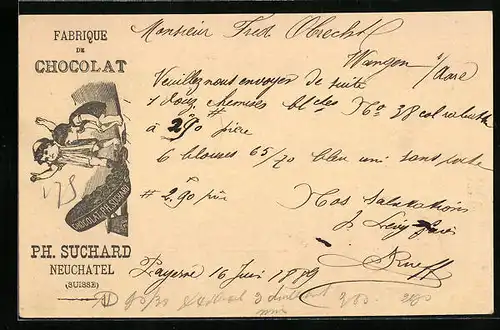 FABRIQUE
DE
CHOCOLAT
CHOCOLAT PH. SUCHARD
PH. SUCHARD
NEUCHATEL
(SUISSE)
Monsieur Fred. Obrecht
Wangen s/Aare
Veuillez nous envoyer de suite
1 douz chemises No 38 col rabattu
à 2.90 pièce
6 blouses 65/70 bleu uni sans
# 2.90 pièce
Nos Salutations
J. Lévy
Rueff
Payerne 16 Juin 1889
175